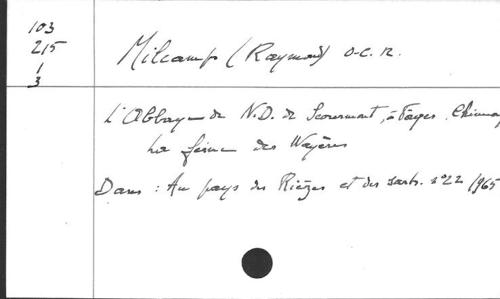 103
215
1
3
Milcamps (Raymond) O.C.R.
L'Abbaye de N.D. de Scourmont, à Forges, Chimay
La ferme des Wayères
Dans : Au pays des Rièzes et des Sarts. n°22 1965